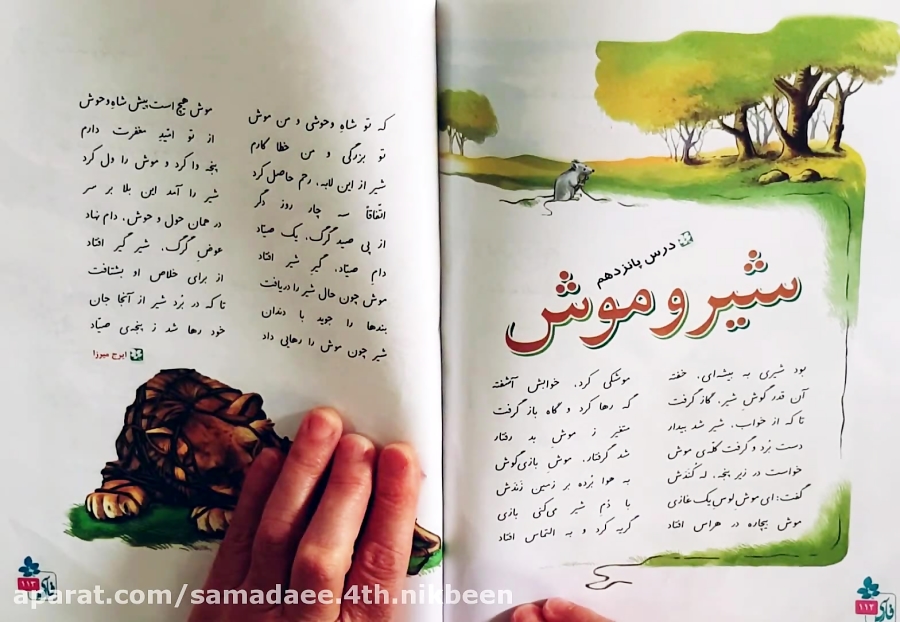 درس پانزدهم
شیر و موش
بود شیری به بیشه‌ای، خفته موشکی کرد، خوابش آشفته
آن قدر گوشِ شیر، گاز گرفت گه رها کرد و گاه باز گرفت
تا که از خواب، شیر شد بیدار متغیر ز موشِ بد رفتار
دست بُرد و گرفت کلّه‌ی موش شد گرفتار، موشِ بازی‌گوش
خواست در زیرِ پنجه، لِه کُنَدَش به هوا بُرده بر زمین زَنَدَش
گفت: ای موشِ لوسِ یک غازی با دُمِ شیر می‌کنی بازی
موشِ بیچاره در هراس افتاد گریه کرد و به التماس افتاد
۱۱۲
فارسی
که تو شاهِ وحوشی و من موش موش هیچ است پیش شاهِ وحوش
تو بزرگی و من خطا کارم از تو امّیدِ مغفرت دارم
شیر از این لابه، رحم حاصل کرد پنجه وا کرد و موش را ول کرد
اتّفاقاً سه چار روز دگر شیر را آمد این بلا بر سر
از پی صید گرگ، یک صیّاد در همان حول و حوش، دام نهاد
دام صیّاد، گیرِ شیر افتاد عوضِ گرگ، شیر گیر افتاد
موش چون حال شیر را دریافت از برای خلاص او بشتافت
بندها را جوید با دندان تا که در بُرد شیر از آنجا جان
شیر چون موش را رهایی داد خود رها شد ز پنجه‌ی صیّاد
ایرج میرزا
۱۱۳
فارسی
aparat.com/samadaee.4th.nikbeen